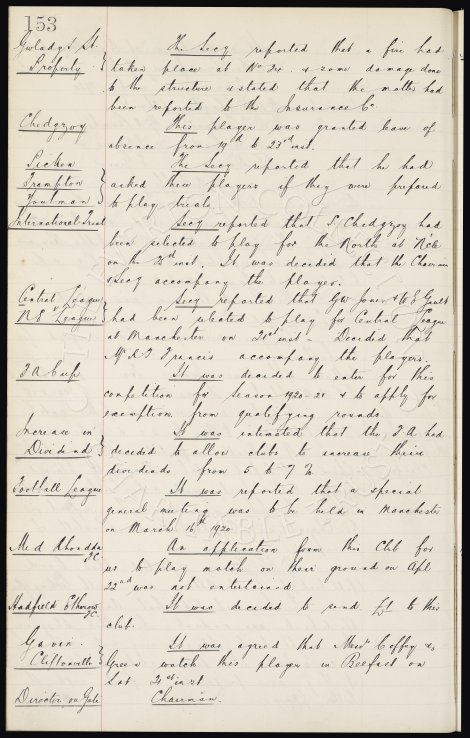 153
Gwladys St. The Secy reported that a fire had
Property taken place at No 34. & some damage done
to the structure & stated that the matter had
been reported to the Insurance Co
Chedgzoy This player was granted leave of
absence from 19th to 23rd inst.
Picken The Secy reported that he had
Frampton asked these players if they were prepared
Youtman to play trials.
International Trial Secy reported that S. Chedgzoy had
been selected to play for the North at Ncle
on the inst. It was decided that the Chairman
& Secy accompany the player.
Central League Secy reported that Geo Jones & W E Gault
N E League had been selected to play for Central League
at Manchester on 21st inst - Decided that
Mr A T Francis accompany the players.
F A Cup It was decided to enter for this
competition for Season 1920-21 & to apply for
exemption from qualifying rounds.
Increase in It was intimated that the F.A had
Dividend decided to allow clubs to increase their
dividends from 5 to 7 %
Football League It was reported that a special
general meeting was to be held in Manchester
on March 16th 1920
Mid Rhondda An application from this Club for
FC us to play match on their ground on Apl
22nd was not entertained.
Hadfield St FC It was decided to send £1 to this
club.
Gavin It was agreed that Messrs Coffey &
Cliftonville Green watch this player in Belfast on
Sat. 21st inst
Director on Gate Chairman.